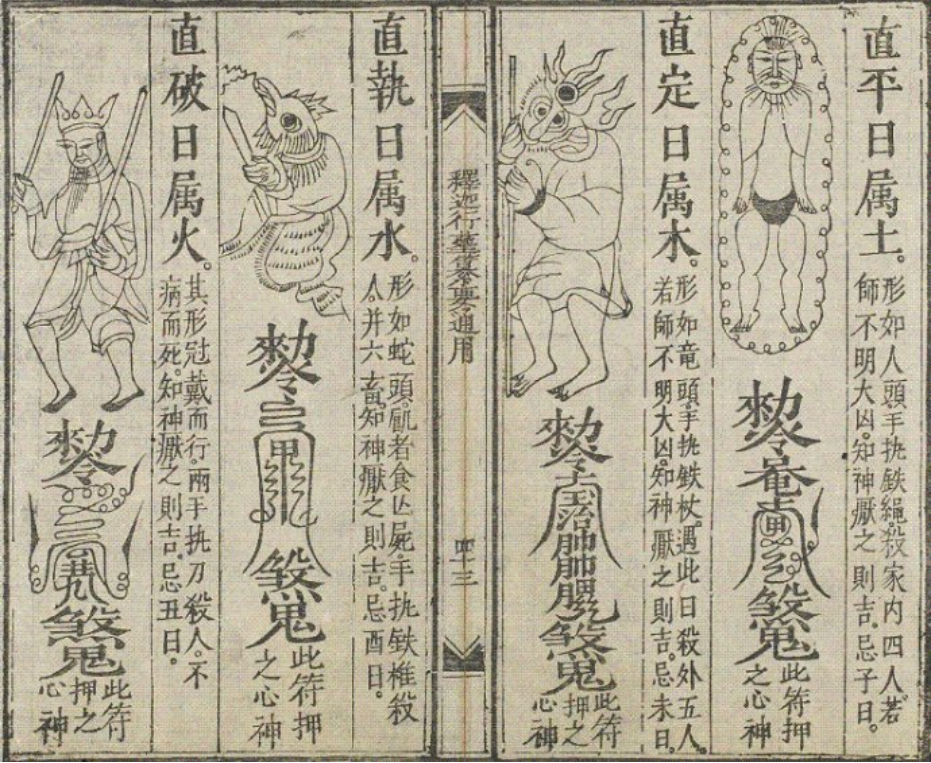 直平日属土。
形如人頭手执鉄縄殺家内四人若
師不明大凶。知神厭之則吉。忌子日。
勅令
煞鬼
此符押
之心神
直定日属木。
形如竜頭手执鉄杖遇此日殺外五人
若師不明大凶。知神厭之則吉。忌未日
勅令
煞鬼
此符
押之
心神
釋迦行
通用
四十三
直執日属水。
形如蛇頭。
者食亾屍。手执鉄椎殺
人。并六畜。知神厭之則吉。忌酉日。
勅令
煞鬼
此符押
之心神
直破日属火。
其形冠戴而行。兩手执刀殺人。不
病而死。知神厭之則吉。忌丑日。
勅令
煞鬼
此符
押之
心神